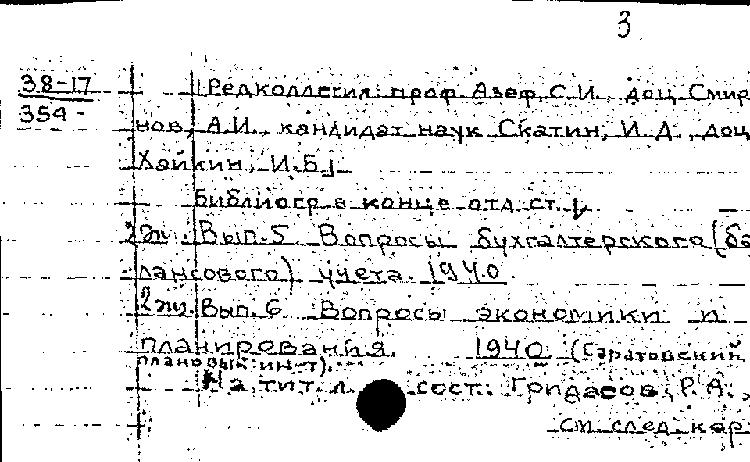 3
38-17
354-
Редколлегия: проф. Азеф, С.И., доц. Смир
нов, А.И., кандидат наук Скатин, И.Д., доц
Хайкин, И.Б.
Библиогр. в конце отд. ст.
2эк. Вып. 5 Вопросы бухгалтерского (ба
лансового) учета. 1940.
2эк. Вып. 6 Вопросы экономики и
планирования. 1940 (Саратовский
плановый ин-т).
На тит. л. сост.: Гридасов, Р.А.,
см. след. кар